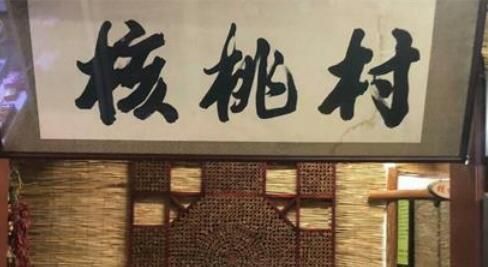 核桃村